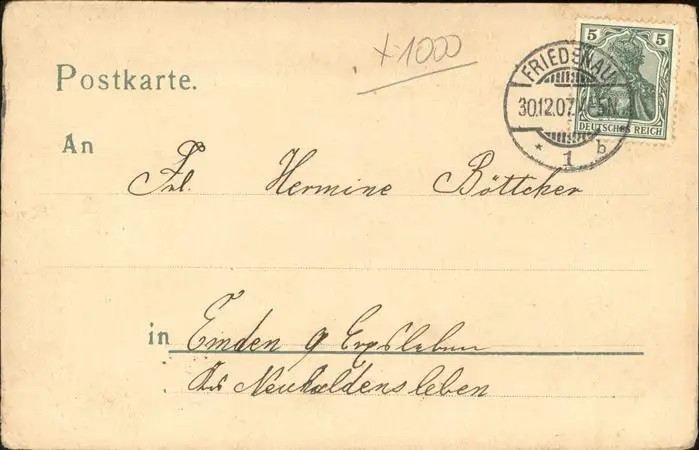 +1000
5 5
DEUTSCHES REICH
FRIEDENAU
30.12.07. 4-5N.
* 1 b
Postkarte.
An
Frl. Hermine Böttcher
in Emden
Neuhaldensleben